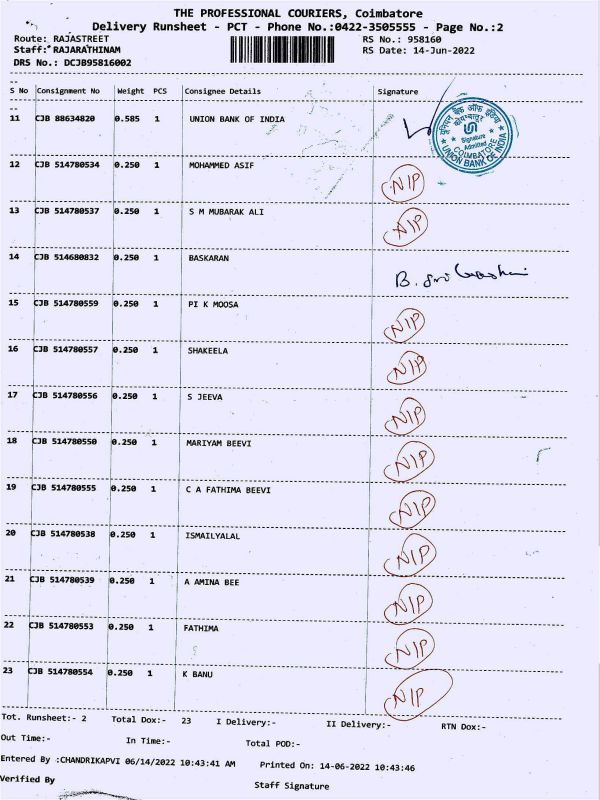 THE PROFESSIONAL COURIERS, Coimbatore
Delivery Runsheet - PCT - Phone No.:0422-3505555 - Page No.:2
Route: RAJASTREET RS No.: 958160
Staff: RAJARATHINAM RS Date: 14-Jun-2022
DRS No.: DCJB95816002
S No Consignment No Weight PCS Consignee Details Signature
11 CJB 88634820 0.585 1 UNION BANK OF INDIA
यूनियन बैंक ऑफ इंडिया
कोयम्बत्तूर
Signature
Admitted
COIMBATORE
UNION BANK OF INDIA
12 CJB 514780534 0.250 1 MOHAMMED ASIF NIP
13 CJB 514780537 0.250 1 S M MUBARAK ALI NIP
14 CJB 514680832 0.250 1 BASKARAN B.
15 CJB 514780559 0.250 1 PI K MOOSA NIP
16 CJB 514780557 0.250 1 SHAKEELA NIP
17 CJB 514780556 0.250 1 S JEEVA NIP
18 CJB 514780550 0.250 1 MARIYAM BEEVI NIP
19 CJB 514780555 0.250 1 C A FATHIMA BEEVI NIP
20 CJB 514780538 0.250 1 ISMAILYALAL NIP
21 CJB 514780539 0.250 1 A AMINA BEE NIP
22 CJB 514780553 0.250 1 FATHIMA NIP
23 CJB 514780554 0.250 1 K BANU NIP
Tot. Runsheet:- 2 Total Dox:- 23 I Delivery:- II Delivery:- RTN Dox:-
Out Time:- In Time:- Total POD:-
Entered By :CHANDRIKAPVI 06/14/2022 10:43:41 AM Printed On: 14-06-2022 10:43:46
Verified By Staff Signature